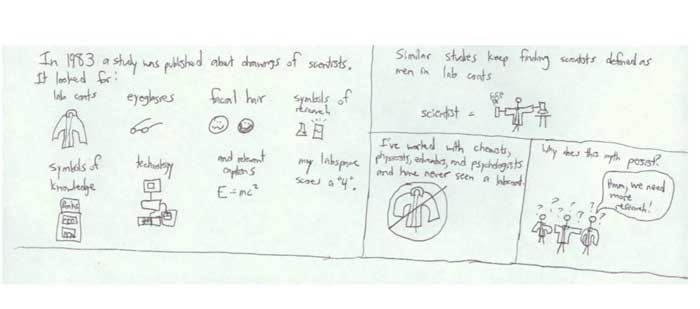 In 1983 a study was published about drawings of scientists.
It looked for:
lab coats
eyeglasses
facial hair
symbols of
research
symbols of
knowledge
technology
and relevant
captions
E=mc²
my labspace
scores a "4".
Similar studies keep finding scientists defined as
men in lab coats
scientist =
I've worked with chemists,
physicists, educators, and psychologists
and have never seen a labcoat.
Why does this myth persist?
Hmm, we need
more
research!